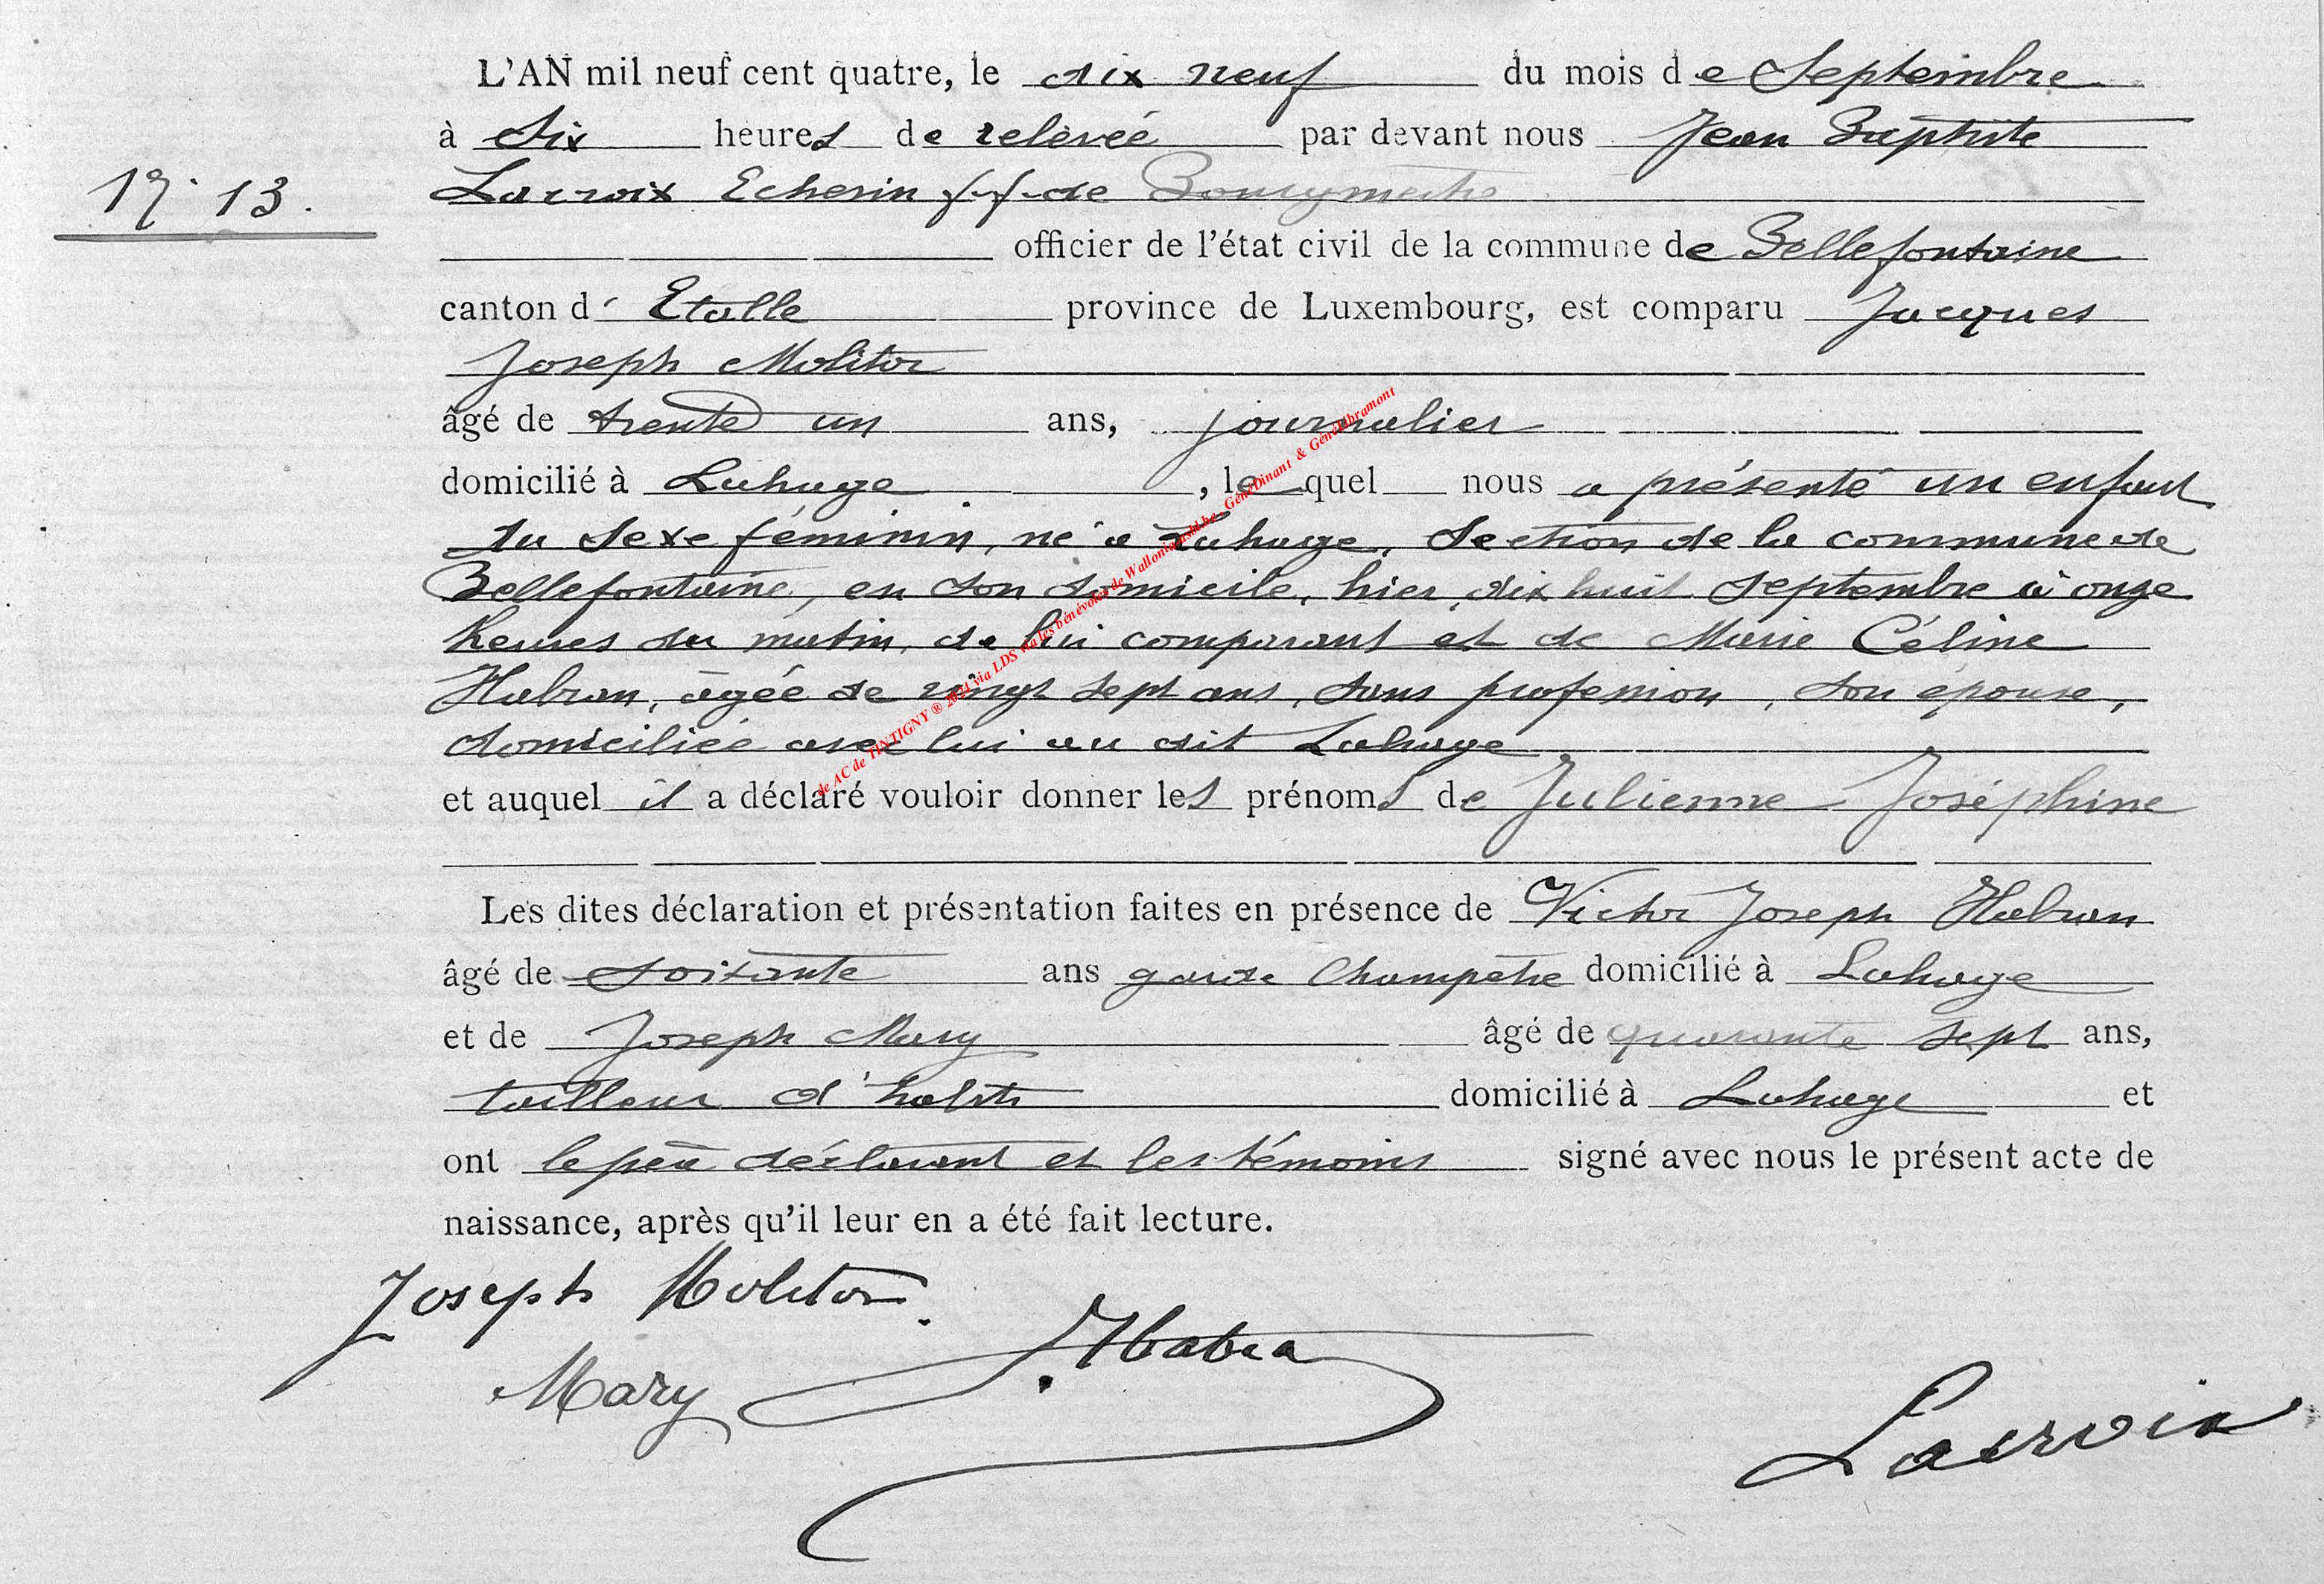 L'AN mil neuf cent quatre, le dix neuf du mois de Septembre
à Six heures de relevée par devant nous Jean Baptiste
Lacroix Echevin f.f. de Bourgmestre
N° 13.
officier de l'état civil de la commune de Bellefontaine
canton d' Etalle province de Luxembourg, est comparu Jacques
Joseph Molitor
âgé de trente un ans, journalier
domicilié à Lahage, lequel nous a présenté un enfant
du sexe féminin, né à Lahage, Section de la commune de
Bellefontaine, en son domicile, hier, dix huit septembre à onze
heures du matin, de lui comparant et de Marie Céline
Habran, âgée de vingt sept ans, sans profession, son épouse,
domiciliée avec lui au dit Lahage
et auquel il a déclaré vouloir donner les prénoms de Julienne Joséphine
Les dites déclaration et présentation faites en présence de Victor Joseph Habran
âgé de soixante ans garde Champêtre domicilié à Lahage
et de Joseph Mary âgé de quarante sept ans,
tailleur d'habits domicilié à Lahage et
ont le père déclarant et les témoins signé avec nous le présent acte de
naissance, après qu'il leur en a été fait lecture.
Joseph Molitor.
Habra
Mary
Lacroix
de AC de TINTIGNY ® 2021 via LDS via les bénévoles de Wallonia asbl.be - GénéDinant & GénéLibramont